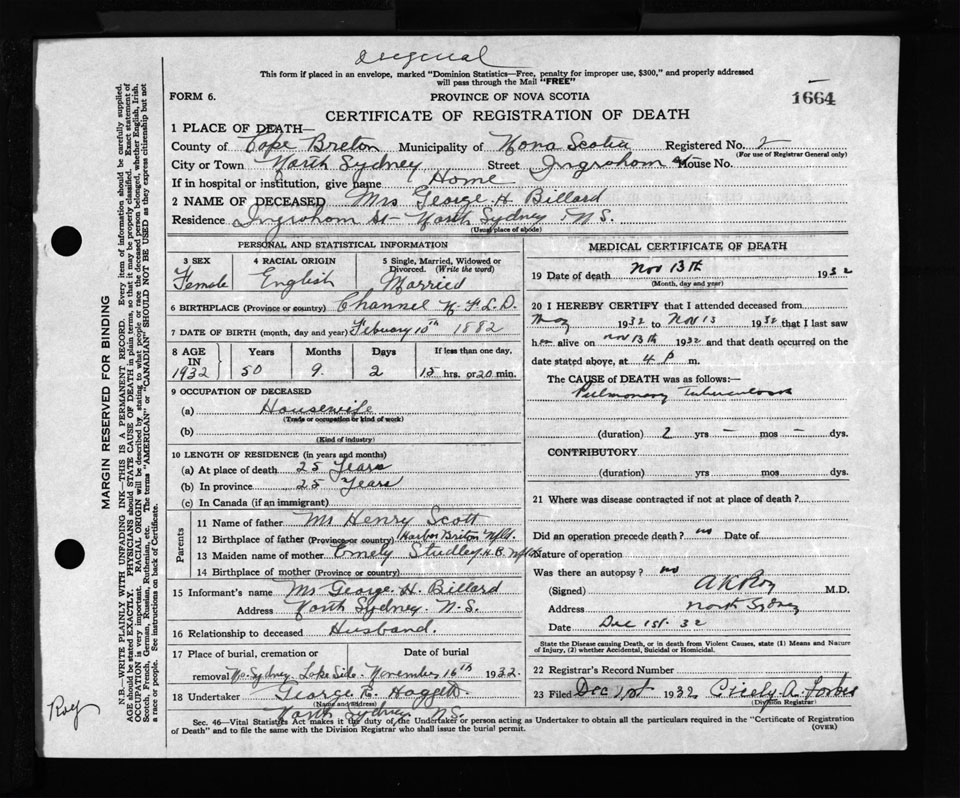 Original
This form if placed in an envelope, marked "Dominion Statistics—Free, penalty for improper use, $300," and properly addressed
will pass through the Mail "FREE"
FORM 6.
PROVINCE OF NOVA SCOTIA
1664
CERTIFICATE OF REGISTRATION OF DEATH
1 PLACE OF DEATH—
County of Cape Breton Municipality of Nova Scotia Registered No. 2
(For use of Registrar General only)
City or Town North Sydney Street Ingraham St House No.
If in hospital or institution, give name Home
2 NAME OF DECEASED Mrs George H. Billard
Residence Ingraham St- North Sydney N.S.
(Usual place of abode)
PERSONAL AND STATISTICAL INFORMATION
3 SEX 4 RACIAL ORIGIN 5 Single, Married, Widowed or
Divorced. (Write the word)
Female English Married
6 BIRTHPLACE (Province or country) Channel N.F.L.D.
7 DATE OF BIRTH (month, day and year) Febuary 10th 1882
8 AGE IN 1932 Years Months Days If less than one day,
50 9. 2 15 hrs. or 20 min.
9 OCCUPATION OF DECEASED
(a) Housewife
(Trade or occupation or kind of work)
(b)
(Kind of industry)
10 LENGTH OF RESIDENCE (in years and months)
(a) At place of death 25 Years
(b) In province 25 Years
(c) In Canada (if an immigrant)
Parents
11 Name of father Mr Henry Scott
12 Birthplace of father (Province or country) Harbor Briton Nfld.
13 Maiden name of mother Emely Studley H.B. Nfld
14 Birthplace of mother (Province or country)
15 Informant's name Mr George H. Billard
Address North Sydney. N.S.
16 Relationship to deceased Husband.
17 Place of burial, cremation or Date of burial
removal No. Sydney Lake Side. November 16th 1932
18 Undertaker George E. Haggett
(Name and address)
North Sydney N.S.
MEDICAL CERTIFICATE OF DEATH
19 Date of death Nov 13th 1932
(Month, day and year)
20 I HEREBY CERTIFY that I attended deceased from
May 1932 to Nov 13 1932 that I last saw
her alive on nov 13th 1932 and that death occurred on the
date stated above, at 4 P m.
The CAUSE of DEATH was as follows:—
Pulmonary Tuberculosis
(duration) 2 yrs – mos – dys.
CONTRIBUTORY
(duration) yrs mos dys.
21 Where was disease contracted if not at place of death?
Did an operation precede death? no Date of
Nature of operation
Was there an autopsy? no
(Signed) A K Roy M.D.
Address North Sydney
Date Dec 1st. 32
State the Disease causing Death, or in death from Violent Causes, state (1) Means and Nature
of Injury, (2) whether Accidental, Suicidal or Homicidal.
22 Registrar's Record Number
23 Filed Dec 1st 1932 Cicely A. Forbes
(Division Registrar)
Sec. 46—Vital Statistics Act makes it the duty of the Undertaker or person acting as Undertaker to obtain all the particulars required in the "Certificate of Registration
of Death" and to file the same with the Division Registrar who shall issue the burial permit.
(OVER)
MARGIN RESERVED FOR BINDING
N.B.—WRITE PLAINLY WITH UNFADING INK—THIS IS A PERMANENT RECORD. Every item of information should be carefully supplied.
AGE should be stated EXACTLY. PHYSICIANS should STATE CAUSE OF DEATH in plain terms, so that it may be properly classified. Exact statement of
OCCUPATION is very important. RACIAL ORIGIN will be described by stating to what people or race the deceased person belonged, whether English, Irish,
Scotch, French, German, Russian, Ruthenian, etc. The terms "AMERICAN" or "CANADIAN" SHOULD NOT BE USED as they express citizenship but not
a race or people. See instructions on back of Certificate.
Roy